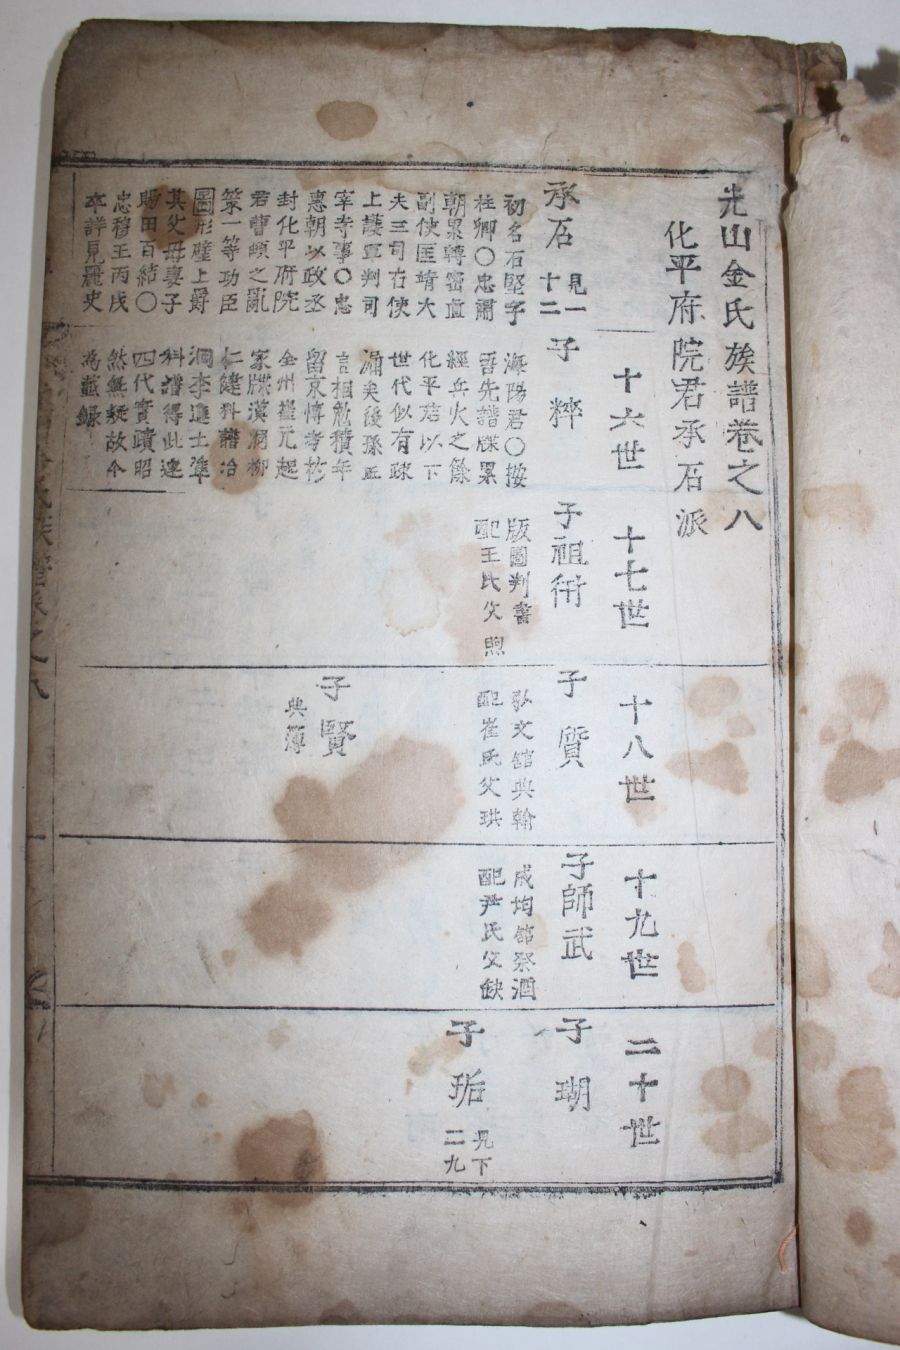 光山金氏族譜卷之八
化平府院君承石派
十六世
十七世
十八世
十九世
二十世
承石
見一
十二
初名石堅字
柱卿〇忠肅
朝累轉密直
副使匡靖大
夫三司右使
上護軍判司
宰寺事〇忠
惠朝以政丞
封化平府院
君曹頔之亂
策一等功臣
圖形壁上爵
其父母妻子
賜田百結〇
忠穆王丙戌
卒詳見麗史
子粹
海陽君〇按
吾先譜牒累
經兵火之餘
化平君以下
世代似有疎
漏矣後孫
言相勉積年
留京博考於
全州崔元起
家牒漢洞柳
仁健科譜冶
洞李進士準
科譜得此連
四代實蹟昭
然無疑故今
爲載錄
子祖衕
版圖判書
配王氏父煦
子質
弘文館典翰
配崔氏父珙
子賢
典簿
子師武
成均館祭酒
配尹氏父缺
子瑚
子垢
見下
二九